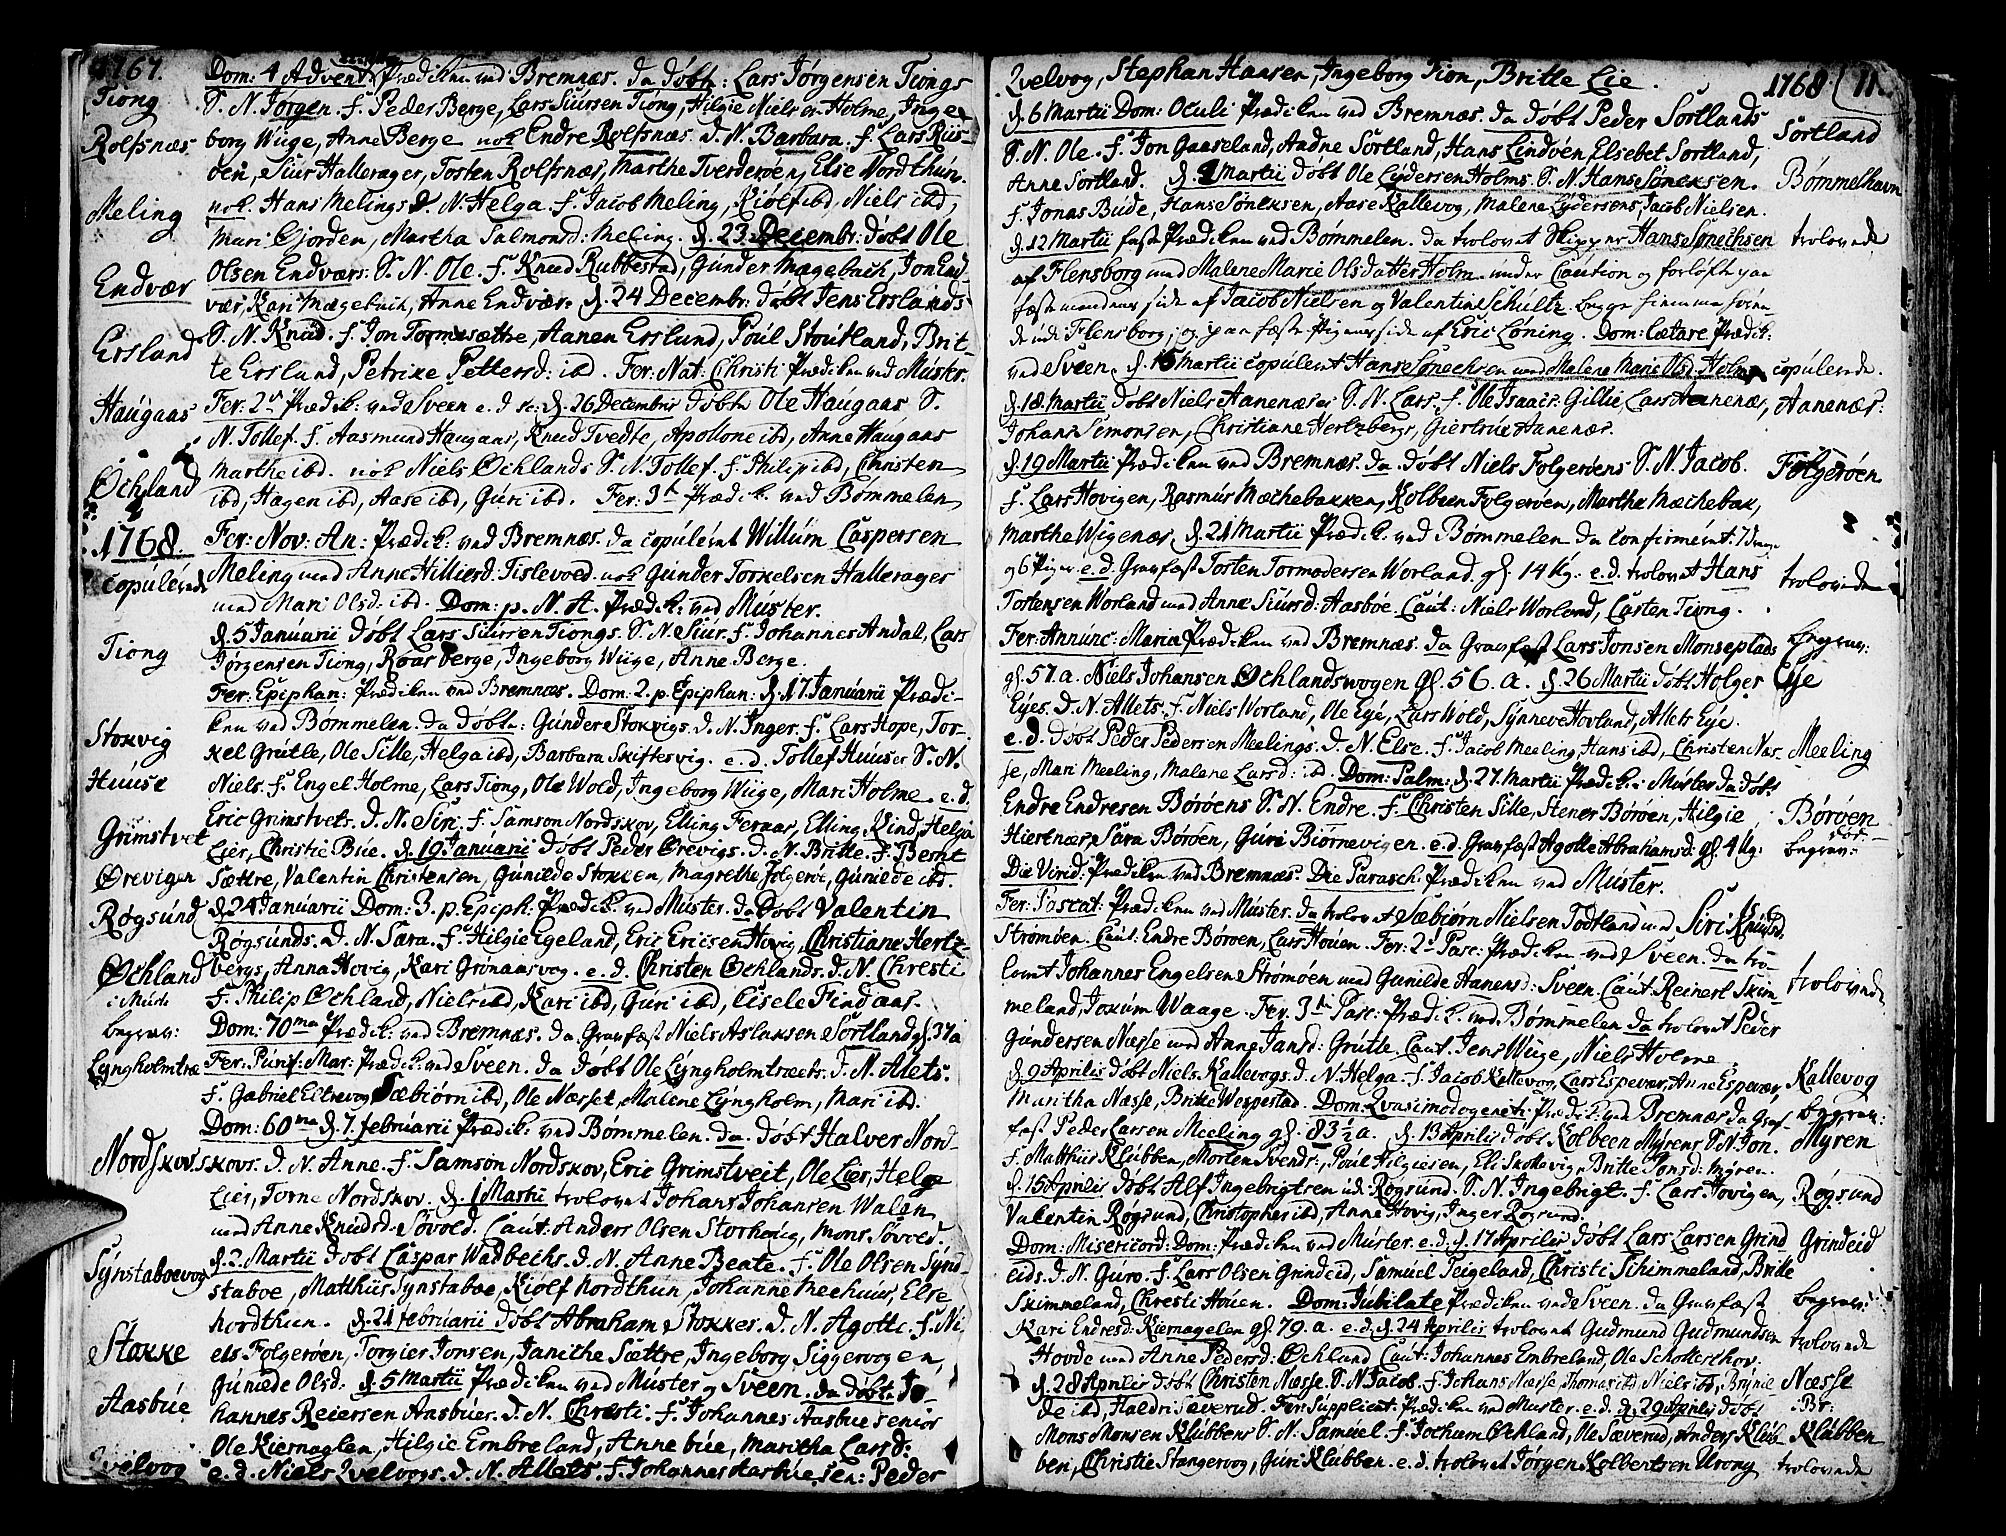 1767.
Dom: 4 Advent Prædiken ved Bremnæs. da døbt: Lars Jørgensen Tiongs
Tiong
S. N. Jørgen. f. Peder Berge, Lars Siursen Tiong, Hilgie Nielsen Holme, Inge-
Rolfsnæs
borg Wiige, Anne Berge nok Endre Rolfsnæs. d. N. Barbara. f. Lars Rus-
øen, Siur Hallerager, Tosten Rolfsnæs, Marthe Tverderøen, Else Nordthun.
Meling
nok Hans Melings d. N. Helga. f. Jacob Meling, Kiølf ibd, Niels ibd,
Mari Giorden, Martha Salmonsd: Meling. d. 23 Decembr: døbt Ole
Endvær
Olsen Endværs: S. N. Ole. f. Knud Rubbestad, Gunder Mægebach, Jon End-
vær, Kari Mægebach, Anne Endvær. d. 24 Decembr: døbt Jens Erslands
Ersland
S. N. Knud. f. Jon Tormesættre, Hanen Ersland, Poul Stoutland, Brit-
te Ersland, Petrike Pettersd: ibd. Fer: Nat: Christi Prædiken ved Muster.
Haugaas
Fer: 2 Prædik: ved Sveen e. d. d. 26 Decembris døbt Ole Haugaas S.
N. Tollef. f. Aasmund Haugaas, Knud Tvedte, Apollone ibd, Anne Haugaas
Øchland
Marthe ibd. nok Niels Øchlands S. N. Tollef. f. Philip ibd, Christen
ibd, Hagen ibd, Aase ibd, Guri ibd. Fer: 3 Prædik: ved Bømmelen
1768.
Fer: Nov: An: Prædik: ved Bremnæs. da copuleret Willum Caspersen
copulerede
Meling med Anne Hilliersd. Tislevold. nok Gunder Torkelsen Hallerager
med Mari Olsd. ibd. Dom: p. N. A. Prædik: ved Muster.
Tiong
d. 5 Januarii døbt Lars Siursen Tiongs. S. N. Siur. f. Johannes Andal, Lars
Jørgensen Tiong, Roar Berge, Ingeborg Wiige, Anne Berge.
Fer: Epiphan: Prædiken ved Bremnæs. Dom: 2. p. Epiphan: d. 17 Januarii Prædi-
ken ved Bømmelen. da døbt: Gunder Stokvigs. d. N. Inger. f. Lars Hope, Tor-
Stokvig
kel Grutle, Ole Sille, Helga ibd, Barbara Skiftesvig. e. d. Tollef Huuser S. N.
Huuse
Niels. f. Engel Holme, Lars Tiong, Ole Wold, Ingeborg Wiige, Mari Holme. e. d.
Grimstvet
Eric Grimstvets. d. N. Siri. f. Samson Nordskov, Elling Feraas, Elling Kind, Helja
Lier, Christie Bue. d. 19 Januarii døbt Peder Orevigs. d. N. Britte. f. Bernt
Orevigen
Sættre, Valentin Christensen, Gunilde Stokken, Magrethe Folgerøe, Gunilde ibd.
Røgsund
d. 24 Januarii Dom: 3. p. Epiph: Prædik: ved Muster. da døbt Valentin
Røgsunds. d. N. Sara. f. Hilgie Egeland, Eric Ericsen Hovig, Christiane Hertz-
Øchland
bergs, Anna Hovig, Kari Grønaasvog. e. d. Christen Øchlands. d. N. Chresti
f. Philip Øchland, Niels ibd, Kari ibd, Guri ibd, Eisele Findaas.
begrav:
Dom: 70ma Prædik: ved Bremnæs. da Gravfæst Niels Aslaksen Sortland gl. 37 a
Lyngholmtræ
Fer: Purif: Mar: Prædik: ved Sveen. da døbt Ole Lyngholmtræets. d. N. Alets.
f. Gabriel Eltrevog, Sæbiørn ibd, Ole Næsset, Malene Lyngholm, Mari ibd.
Dom: 60ma d. 7. februarii Prædik: ved Bømmelen. da døbt Halver Nord-
Nordskov
skovs. d. N. Anne. f. Samson Nordskov, Eric Grimstveit, Ole Lier, Helge
Lier, Torne Nordskov. d. 1 Martii trolovet Johans Johansen Walen
med Anne Knudsd. Søvold. Caut: Anders Olsen Storhoug, Mons Søvold.
Synstabøevog
d. 2. Martii døbt Caspar Wadbechs. d. N. Anne Beate. f. Ole Olsen Synd-
stabøe, Matthiis Synstabøe, Kiølf Nordthun, Johanne Meehuus, Else
Nordthun. d. 21 februarii døbt Abraham Stokkes. d. N. Agotte. f. Ni-
Stokke
els Folgerøen, Torgier Jonsen, Janithe Sættre, Ingeborg Siggervogen,
Gunilde Olsd: d. 5 Martii Prædiken ved Muster og Sveen. da døbt: Jo-
Aasbue
hannes Reiersen Aasbues. d. N. Christi. f. Johannes Aasbue senior
Ole Kiernaglen, Hilgie Embreland, Anne bue, Maritha Larsd:
Qvelvog
e. d. Niels Qvelvogs. d. N. Allets. f. Johannes Aasbue sen: Peder
Qvelvog, Stephan Hansen, Ingeborg Tion, Britte Lie.
1768 11.
d. 6 Martii Dom: Oculi Prædiken ved Bremnæs. da døbt Peder Sortlands
Sortland
S. N. Ole. f. Jon Gaaseland, Aadne Sortland, Hans Lindøen, Elsebet Sortland,
Anne Sortland. d. Martii døbt Ole Lydersen Holms. S. N. Hans Søneksen.
Bømmelhavn
f. Jonas Bude, Hans Søneksen, Aase Kallevog, Malene Lydersens, Jacob Nielsen.
d. 12 Martii fast Prædiken ved Bømmelen. da trolovet Skipper Hans Sønechsen
trolovede
af Flensborg med Malene Marie Olsdatter Holm under Caution og forløfte paa
fæstemandens side af Jacob Nielsen og Valentin Schultz begge hiemmehøren-
de udi Flensborg, og paa fæste Pigens side af Eric Løning. Dom: Lætare Prædik:
ved Sveen. d. 15 Martii copuleret Hans Sønechsen med Malene Marie Olsd. Holm
copulerede.
d. 18. Martii døbt Niels Aanenæses S. N. Lars. f. Ole Isaacs: Gillie, Lars Aanenæs,
Aanenæs:
Johan Simonsen, Christiane Hertzbergs, Giertrue Aanenæs.
d. 19 Martii Prædiken ved Bremnæs. da døbt Niels Folgerøens S. N. Jacob.
Folgerøen
f. Lars Hovigen, Rasmus Mæchebakken, Kolbeen Folgerøen, Marthe Mæchebak,
Marthe Wigenæs. d. 21 Martii Prædik: ved Bømmelen da confirmeret 7 drenge
og 6 Piger e. d. Gravfæst Tosten Tormodersen Worland. gl. 14 Ug: e. d. trolovet Hans
trolovede
Tostensen Worland med Anne Siursd: Aasbøe. Caut: Niels Worland, Casten Tiong.
Fer: Annunc: Maria Prædiken ved Bremnæs. da Gravfæst Lars Jonsen Monseplads
begrav:
gl. 57. a. Niels Johansen Øchlandsvogen gl. 56. a. d. 26 Martii døbt Holger
Eye
Eyes. d. N. Allets. f. Niels Worland, Ole Eye, Lars Wold, Synneve Hovland, Allets Eye.
e. d. døbt Peder Pedersen Meelings. d. N. Else. f. Jacob Meeling, Hans ibd, Christen Næs-
Meeling
se, Mari Meeling, Malene Larsd: ibd. Dom: Palm: d. 27. Martii Prædik: i Muster da døbt
Endre Endresen Børøens S. N. Endre. f. Christen Sille, Stener Børøen, Hilgie
Børøen
Hiertnæs, Sara Børøen, Guri Biørnevigen. e. d. Gravfæst Agotte Abrahamsd: gl. 4 Ug:
begrav:
Die Virid: Prædiken ved Bremnæs. Die Parasch: Prædiken ved Muster.
Fer: Pascat: Prædiken ved Muster. da trolovet Sæbiørn Nielsen Todtland med Siri Knudsd.
Strømøen. Caut: Endre Børøen, Lars Houen. Fer: 2 Pasc: Prædiken ved Sveen. da tro-
lovet Johannes Engelsen Strømøen med Gunilde Hanensd: Sveen. Caut: Reinert Skim-
trolovede
meland, Jokum Waage. Fer: 3 Pasc: Prædik: ved Bømmelen da trolovet Peder
Gundersen Næsse med Anne Jansd: Grutle. Caut. Jens Wiige, Niels Holme
d. 9 Aprilis døbt Niels Kallevogs. d. N. Helga. f. Jacob Kallevog, Lars Espevær, Anne Espevær,
Kallevog
Maritha Næsse, Britte Wespestad. Dom: Qvasimodogeniti Prædik: ved Bremnæs da Grav-
begrav:
fæst Peder Larsen Meeling gl. 83 ½ a. d. 13 Aprilis døbt Kolbeen Myrens S. N. Jon.
Myren
f. Matthiis Klubben, Morten Svends:, Poul Hilgiesen, Eli Skokevig, Britte Jonsd: Myren.
d. 15 Aprilis døbt Alf Ingebrigtsen ud. Røgsund. S. N. Ingebrigt. f. Lars Hovigen,
Røgsund
Valentin Røgsund, Christopher ibd, Anne Hovig, Inger Røgsund.
Dom: Misericord: Dom: Prædiken ved Muster. e. d. d. 17 Aprilis døbt Lars Larsen Grind
Grindeid
eids. d. N. Guro. f. Lars Olsen Grindeid, Samuel Teigeland, Christi Schimmeland, Britte
Skimmeland, Chresti Houen. Dom: Jubilate Prædiken ved Sveen. da Gravfæst
begrav:
Kari Endresd: Kiernagelen gl. 79. a. e. d. d. 24 Aprilis trolovet Gudmund Gudmundsen
trolovede
Hovde med Anne Pedersd: Øchland Caut: Johannes Embreland, Ole Schottershov.
d. 28 Aprilis døbt Christen Næsse. S. N. Jacob. f. Johans Næsse, Thomas ibd, Niels ibd, Brynie
Næsse
de ibd, Haldri Sæverud. Fer: Supplicat: Prædiken ved Muster. e. d. d. 29 Aprilis døbt
Br:
Mons Monsen Klubbens S. N. Samuel. f. Jochum Øchland, Ole Sæverud, Anders Klub-
Klubben
ben, Christie Stangervog, Guri Klubben. e. d. trolovet Jørgen Kolbertsen Urang
trolovede